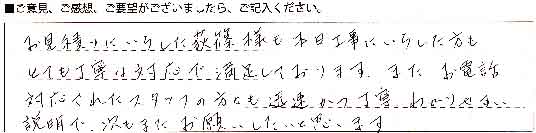 ■ご意見、ご感想、ご要望がございましたら、ご記入ください。
お見積りにいらした荻篠様も本日工事にいらした方も
とても丁寧な対応で満足しております。また お電話
対応くれたスタッフの方も迅速かつ丁寧、わかりやすい
説明で、次もまた お願いしたいと思います